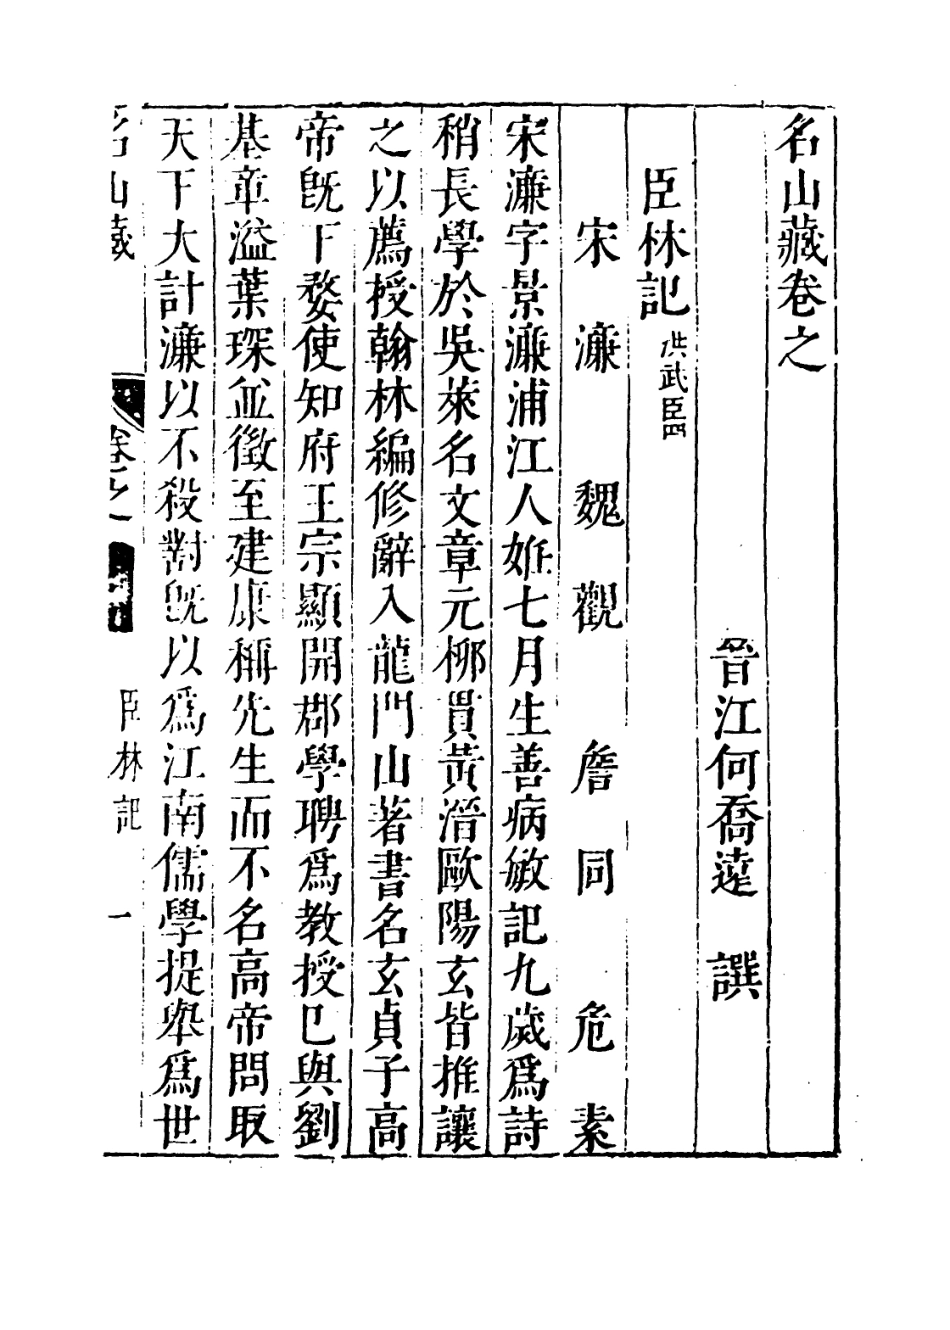 名山藏卷之
晉江何喬遠 譔
臣林記 洪武臣四
宋濂 魏觀 詹同 危素
宋濂字景濂浦江人姙七月生善病敏記九歲爲詩
稍長學於吳萊名文章元栁貫黃溍歐陽玄皆推讓
之以薦授翰林編修辭入龍門山著書名玄貞子高
帝旣下婺使知府王宗顯開郡學聘爲教授巳與劉
基章溢葉琛並徵至建康稱先生而不名高帝問取
天下大計濂以不殺對旣以爲江南儒學提舉爲世
名山藏 卷之 臣林記 一